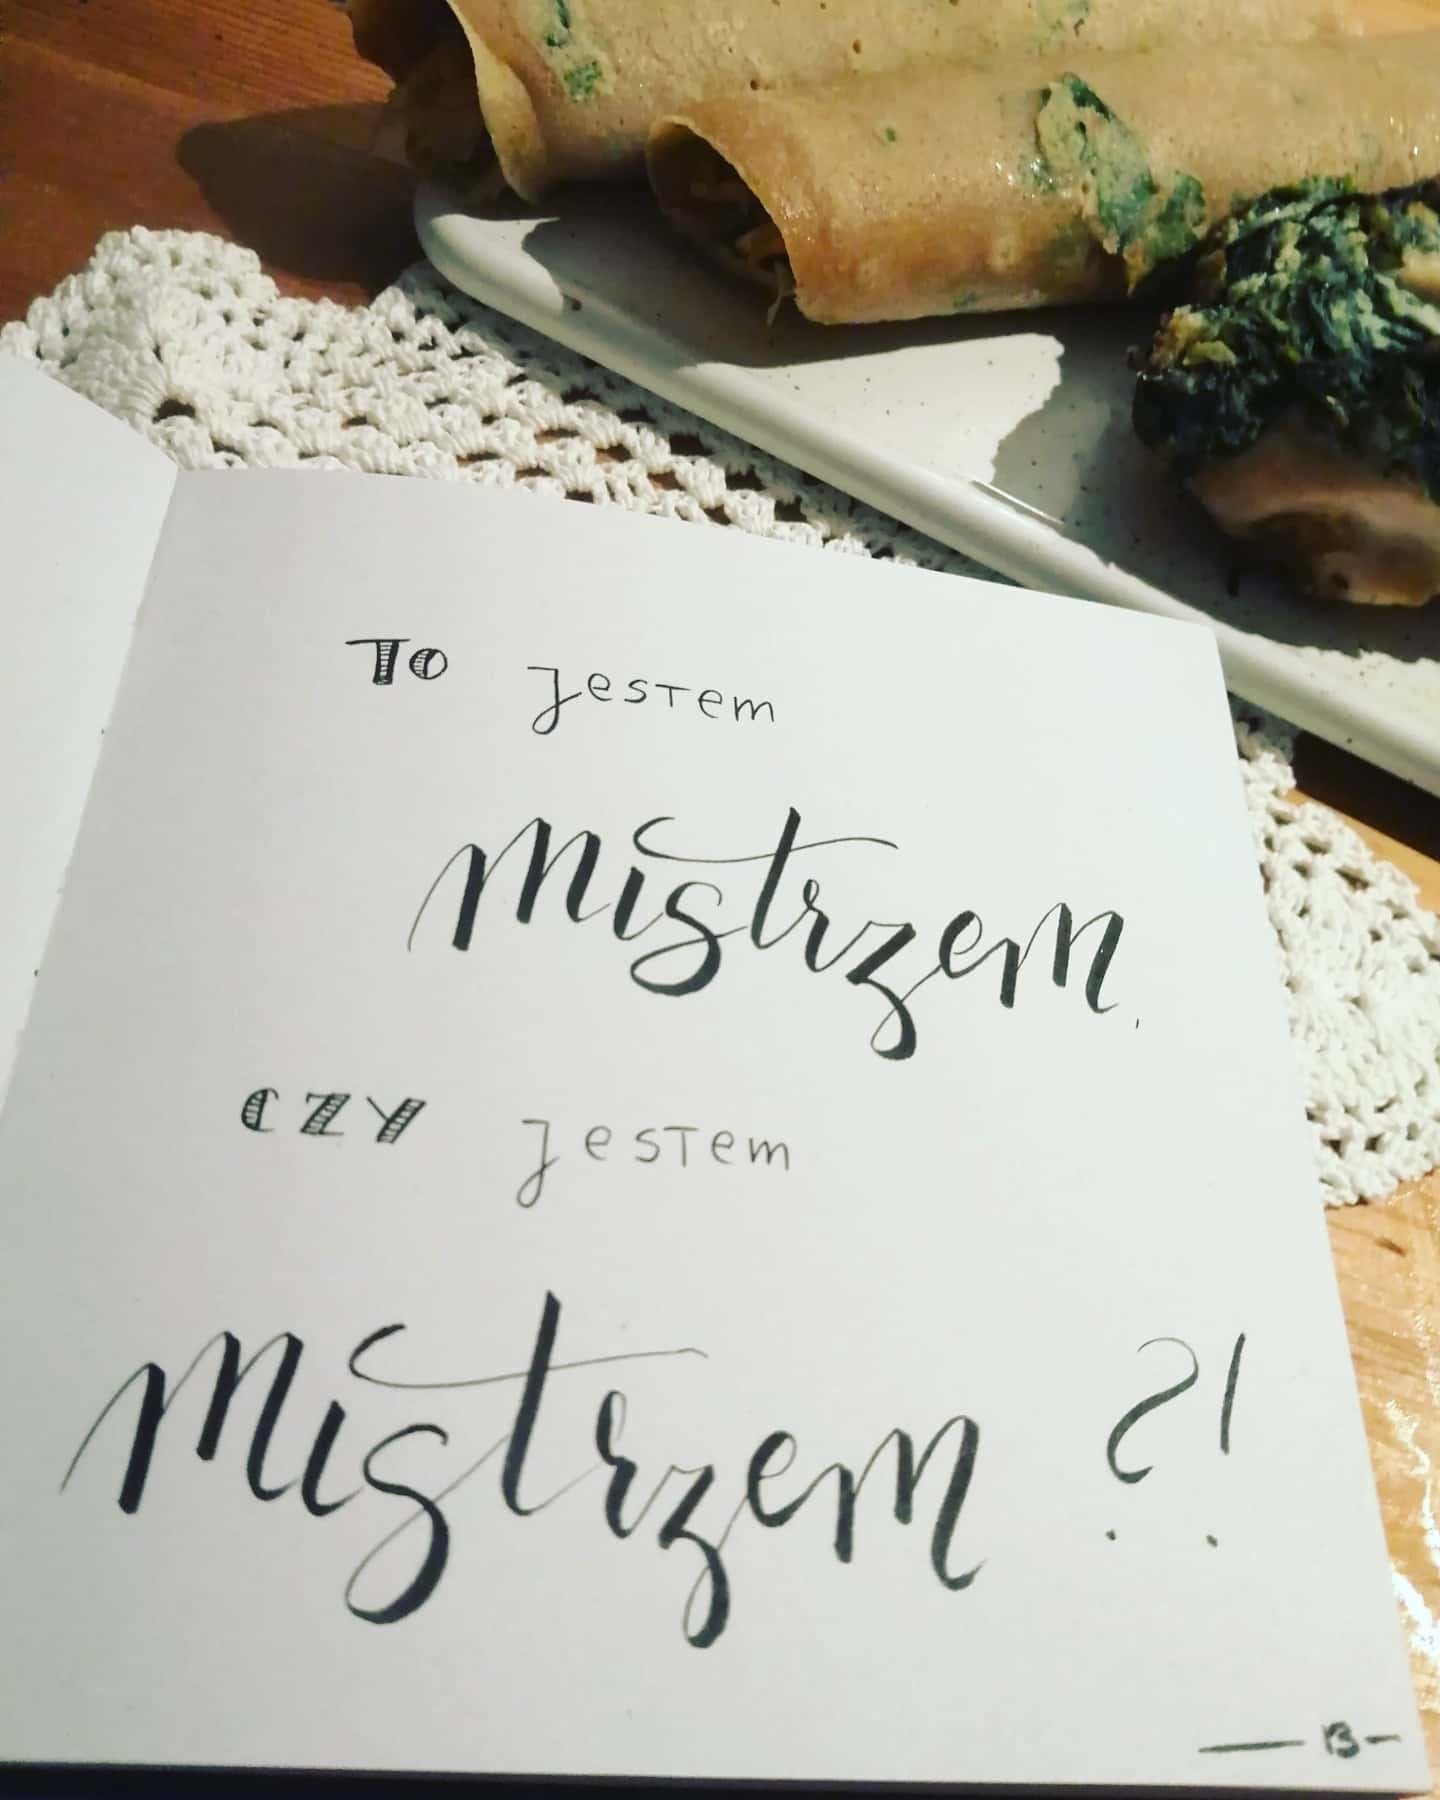 To jestem
mistrzem,
CZY jestem
mistrzem ?!
— 13 -